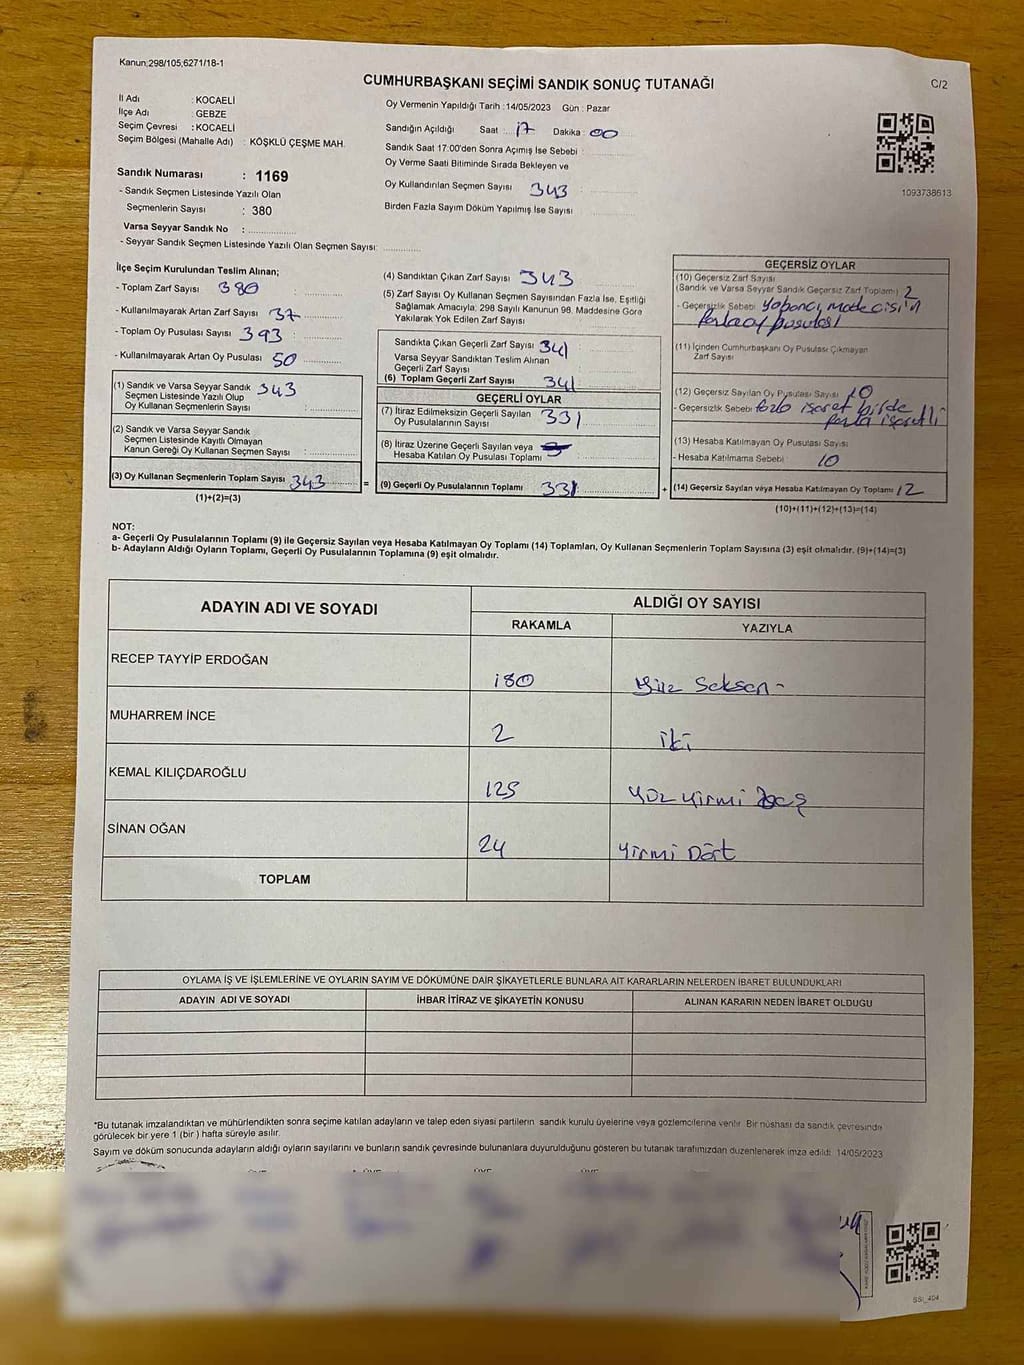 Kanun;298/105;6271/18-1
CUMHURBAŞKANI SEÇİMİ SANDIK SONUÇ TUTANAĞI
C/2
İl Adı : KOCAELİ
İlçe Adı : GEBZE
Seçim Çevresi : KOCAELİ
Seçim Bölgesi (Mahalle Adı) : KÖŞKLÜ ÇEŞME MAH.
Sandık Numarası : 1169
- Sandık Seçmen Listesinde Yazılı Olan
Seçmenlerin Sayısı : 380
Varsa Seyyar Sandık No :
- Seyyar Sandık Seçmen Listesinde Yazılı Olan Seçmen Sayısı:
Oy Vermenin Yapıldığı Tarih : 14/05/2023 Gün : Pazar
Sandığın Açıldığı Saat : 17 Dakika : 00
Sandık Saat 17:00'den Sonra Açımış İse Sebebi :
Oy Verme Saati Bitiminde Sırada Bekleyen ve
Oy Kullandırılan Seçmen Sayısı : 343
Birden Fazla Sayım Döküm Yapılmış İse Sayısı
1093738613
İlçe Seçim Kurulundan Teslim Alınan;
- Toplam Zarf Sayısı 380
- Kullanılmayarak Artan Zarf Sayısı : 37
- Toplam Oy Pusulası Sayısı : 393
- Kullanılmayarak Artan Oy Pusulası : 50
(1) Sandık ve Varsa Seyyar Sandık 343
Seçmen Listesinde Yazılı Olup
Oy Kullanan Seçmenlerin Sayısı :
(2) Sandık ve Varsa Seyyar Sandık
Seçmen Listesinde Kayıtlı Olmayan
Kanun Gereği Oy Kullanan Seçmen Sayısı :
(3) Oy Kullanan Seçmenlerin Toplam Sayısı : 343
(1)+(2)=(3)
(4) Sandıktan Çıkan Zarf Sayısı : 343
(5) Zarf Sayısı Oy Kullanan Seçmen Sayısından Fazla İse, Eşitliği
Sağlamak Amacıyla; 298 Sayılı Kanunun 98. Maddesine Göre
Yakılarak Yok Edilen Zarf Sayısı :
Sandıkta Çıkan Geçerli Zarf Sayısı : 341
Varsa Seyyar Sandıktan Teslim Alınan
Geçerli Zarf Sayısı :
(6) Toplam Geçerli Zarf Sayısı : 341
GEÇERLİ OYLAR
(7) İtiraz Edilmeksizin Geçerli Sayılan
Oy Pusulasının Sayısı : 331
(8) İtiraz Üzerine Geçerli Sayılan veya
Hesaba Katılan Oy Pusulası Toplamı :
(9) Geçerli Oy Pusulalarının Toplamı : 331
GEÇERSİZ OYLAR
(10) Geçersiz Zarf Sayısı
(Sandık ve Varsa Seyyar Sandık Geçersiz Zarf Toplamı) : 2
- Geçersizlik Sebebi : yabancı
oy pusulası
(11) İçinden Cumhurbaşkanı Oy Pusulası Çıkmayan
Zarf Sayısı
(12) Geçersiz Sayılan Oy Pusulası Sayısı : 10
- Geçersizlik Sebebi : işaret birde
fazla işaretli
(13) Hesaba Katılmayan Oy Pusulası Sayısı
- Hesaba Katılmama Sebebi : 10
= + (14) Geçersiz Sayılan veya Hesaba Katılmayan Oy Toplamı : 12
(10)+(11)+(12)+(13)=(14)
NOT:
a- Geçerli Oy Pusulalarının Toplamı (9) ile Geçersiz Sayılan veya Hesaba Katılmayan Oy Toplamı (14) Toplamları, Oy Kullanan Seçmenlerin Toplam Sayısına (3) eşit olmalıdır. (9)+(14)=(3)
b- Adayların Aldığı Oyların Toplamı, Geçerli Oy Pusulalarının Toplamına (9) eşit olmalıdır.
ADAYIN ADI VE SOYADI ALDIĞI OY SAYISI
RAKAMLA YAZIYLA
RECEP TAYYİP ERDOĞAN 180 Yüz Seksen -
MUHARREM İNCE 2 iki
KEMAL KILIÇDAROĞLU 125 yüz yirmi Beş
SİNAN OĞAN 24 Yirmi Dört
TOPLAM
OYLAMA İŞ VE İŞLEMLERİNE VE OYLARIN SAYIM VE DÖKÜMÜNE DAİR ŞİKAYETLERLE BUNLARA AİT KARARLARIN NELERDEN İBARET BULUNDUKLARI
ADAYIN ADI VE SOYADI İHBAR İTİRAZ VE ŞİKAYETİN KONUSU ALINAN KARARIN NEDEN İBARET OLDUĞU
*Bu tutanak imzalandıktan ve mühürlendikten sonra seçime katılan adayların ve talep eden siyasi partilerin sandık kurulu üyelerine veya gözlemcilerine verilir. Bir nüshası da sandık çevresinde
görülecek bir yere 1 (bir ) hafta süreyle asılır.
Sayım ve döküm sonucunda adayların aldığı oyların sayılarını ve bunların sandık çevresinde bulunanlara duyurulduğunu gösteren bu tutanak tarafımızdan düzenlenerek imza edildi. 14/05/2023
SSI_404